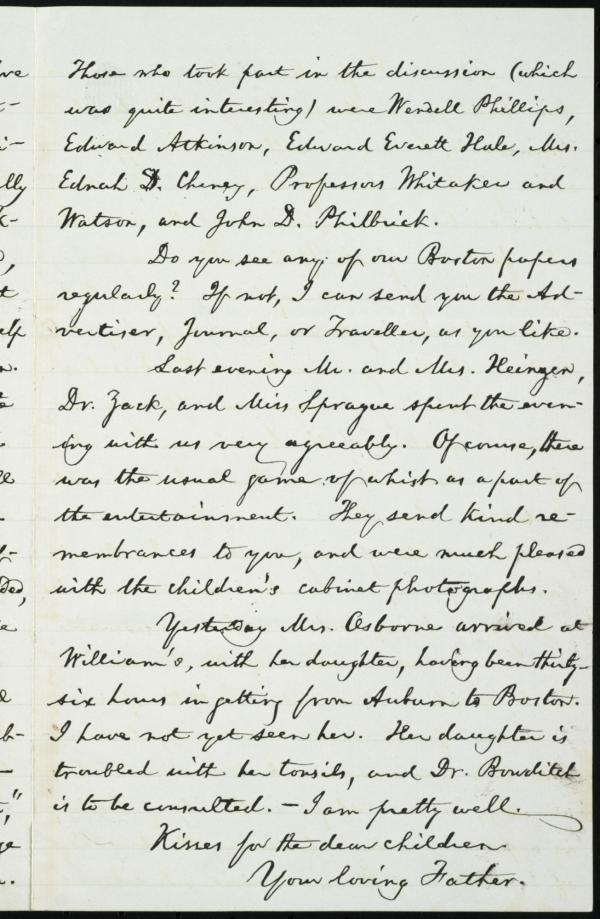 Those who took part in the discussion (which
was quite interesting) were Wendell Phillips,
Edward Atkinson, Edward Everett Hale, Mrs.
Ednah D. Cheney, Professors Whitaker and
Watson, and John D. Philbrick.
Do you see any of our Boston papers
regularly? If not, I can send you the Ad-
vertiser, Journal, or Traveller, as you like.
Last evening Mr. and Mrs. Heinzen,
Dr. Zack, and Miss Sprague spent the even-
ing with us very agreeably. Of course, there
was the usual game of whist as a part of
the entertainment. They send kind re-
membrances to you, and were much pleased
with the children's cabinet photographs.
Yesterday Mrs. Osborne arrived at
William's, with her daughter, having been thirty-
six hours in getting from Auburn to Boston.
I have not yet seen her. Her daughter is
troubled with her tonsils, and Dr. Bowditch
is to be consulted. — I am pretty well.
Kisses for the dear children.
Your loving Father.